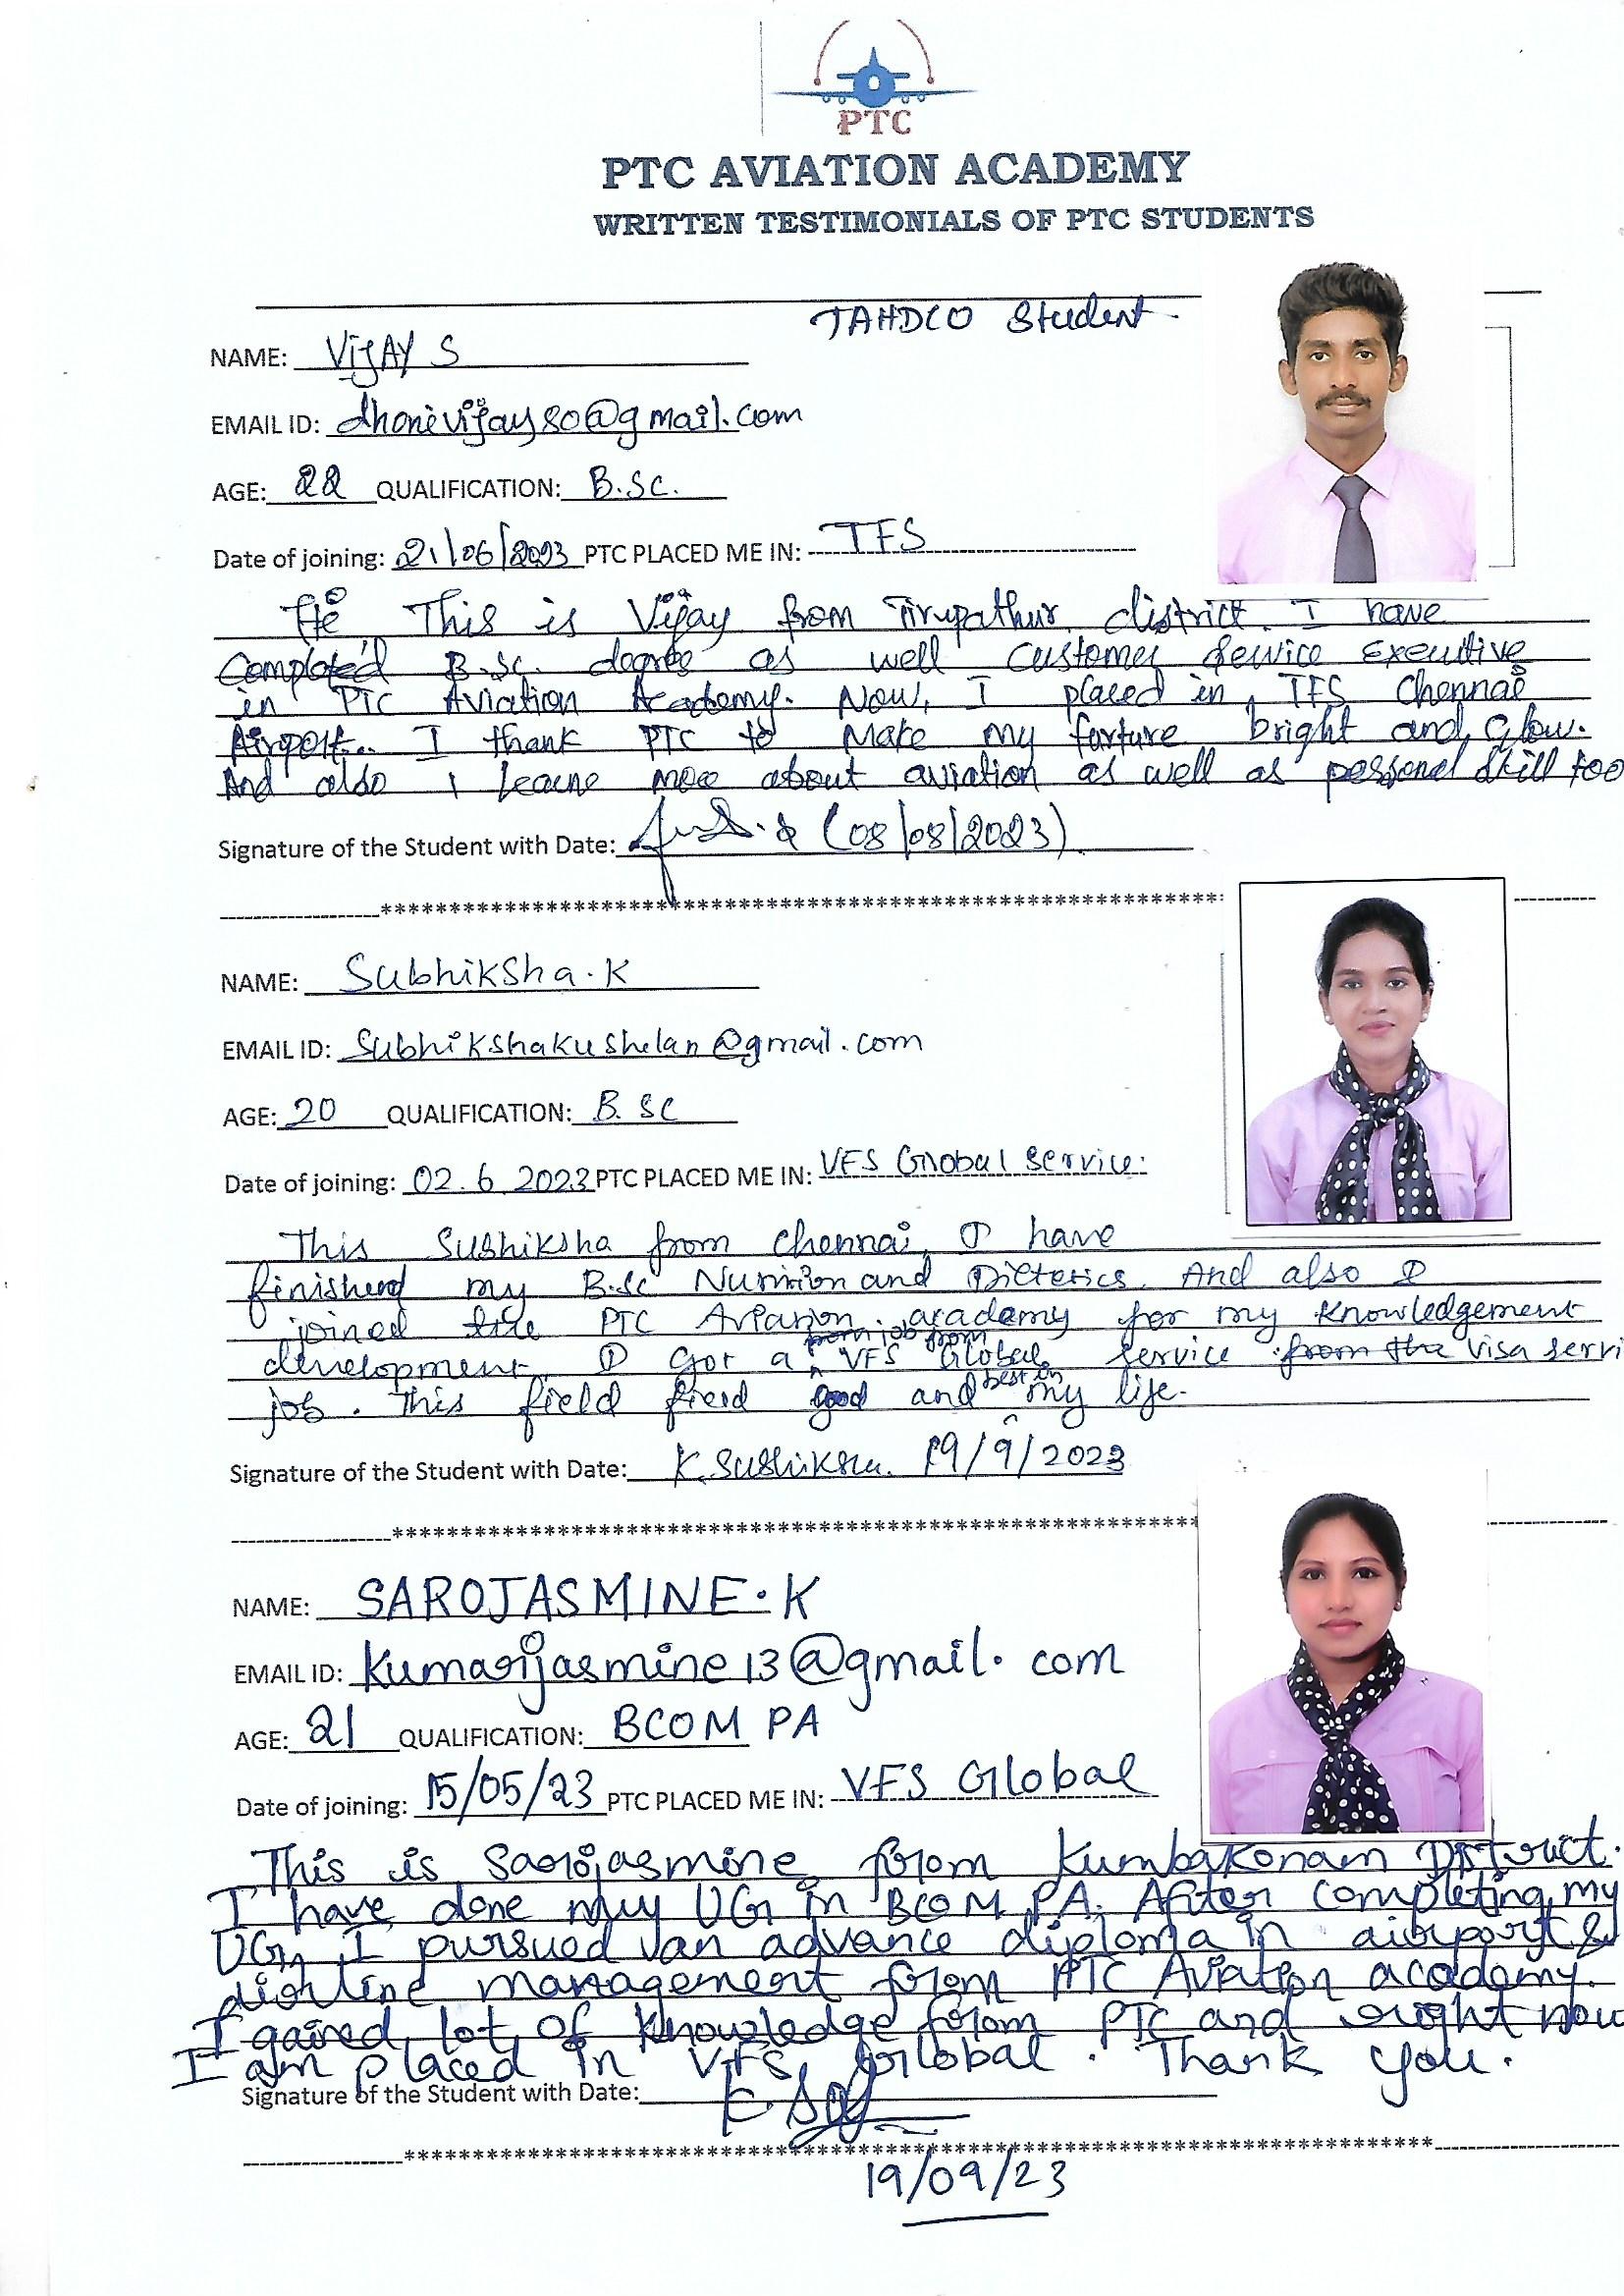 PTC
PTC AVIATION ACADEMY
WRITTEN TESTIMONIALS OF PTC STUDENTS
TAHDCO Student.
NAME: VIJAY S
EMAIL ID: dhonivijay80@gmail.com
AGE: 22 QUALIFICATION: B.Sc.
Date of joining: 21/06/2023 PTC PLACED ME IN: TFS
Hi This is Vijay from Tirupathur district. I have
Completed B.Sc. degree as well Customer Service Executive
in PTC Aviation Academy. Now, I placed in TFS Chennai
Airport.. I thank PTC to Make my furture bright and Glow.
And also I learne more about aviation as well as personal skill too
Signature of the Student with Date: (08/08/2023)
****************************************************************
NAME: Subhiksha.K
EMAIL ID: Subhikshakushelan@gmail.com
AGE: 20 QUALIFICATION: B.SC
Date of joining: 02.6.2023 PTC PLACED ME IN: VFS Global Service.
This Subhiksha from Chennai, I have
finished my B.Sc Nutrition and Dietetics. And also I
joined the PTC Aviation academy for my knowledgement
development. I got a job from VFS Global service from the visa servi
job. This field good and best in my life.
Signature of the Student with Date: K.Subhiksha. 19/9/2023
****************************************************************
NAME: SAROJASMINE.K
EMAIL ID: kumarijasmine13@gmail.com
AGE: 21 QUALIFICATION: BCOM PA
Date of joining: 15/05/23 PTC PLACED ME IN: VFS Global
This is Sarojasmine from Kumbakonam District.
I have done my UG in BCOM PA. After completing my
UG, I pursued an advance diploma in airport &
airline management from PTC Aviation academy.
I gained lot of knowledge from PTC and right now
I am placed in VFS Global. Thank you.
Signature of the Student with Date:
****************************************************************
19/09/23